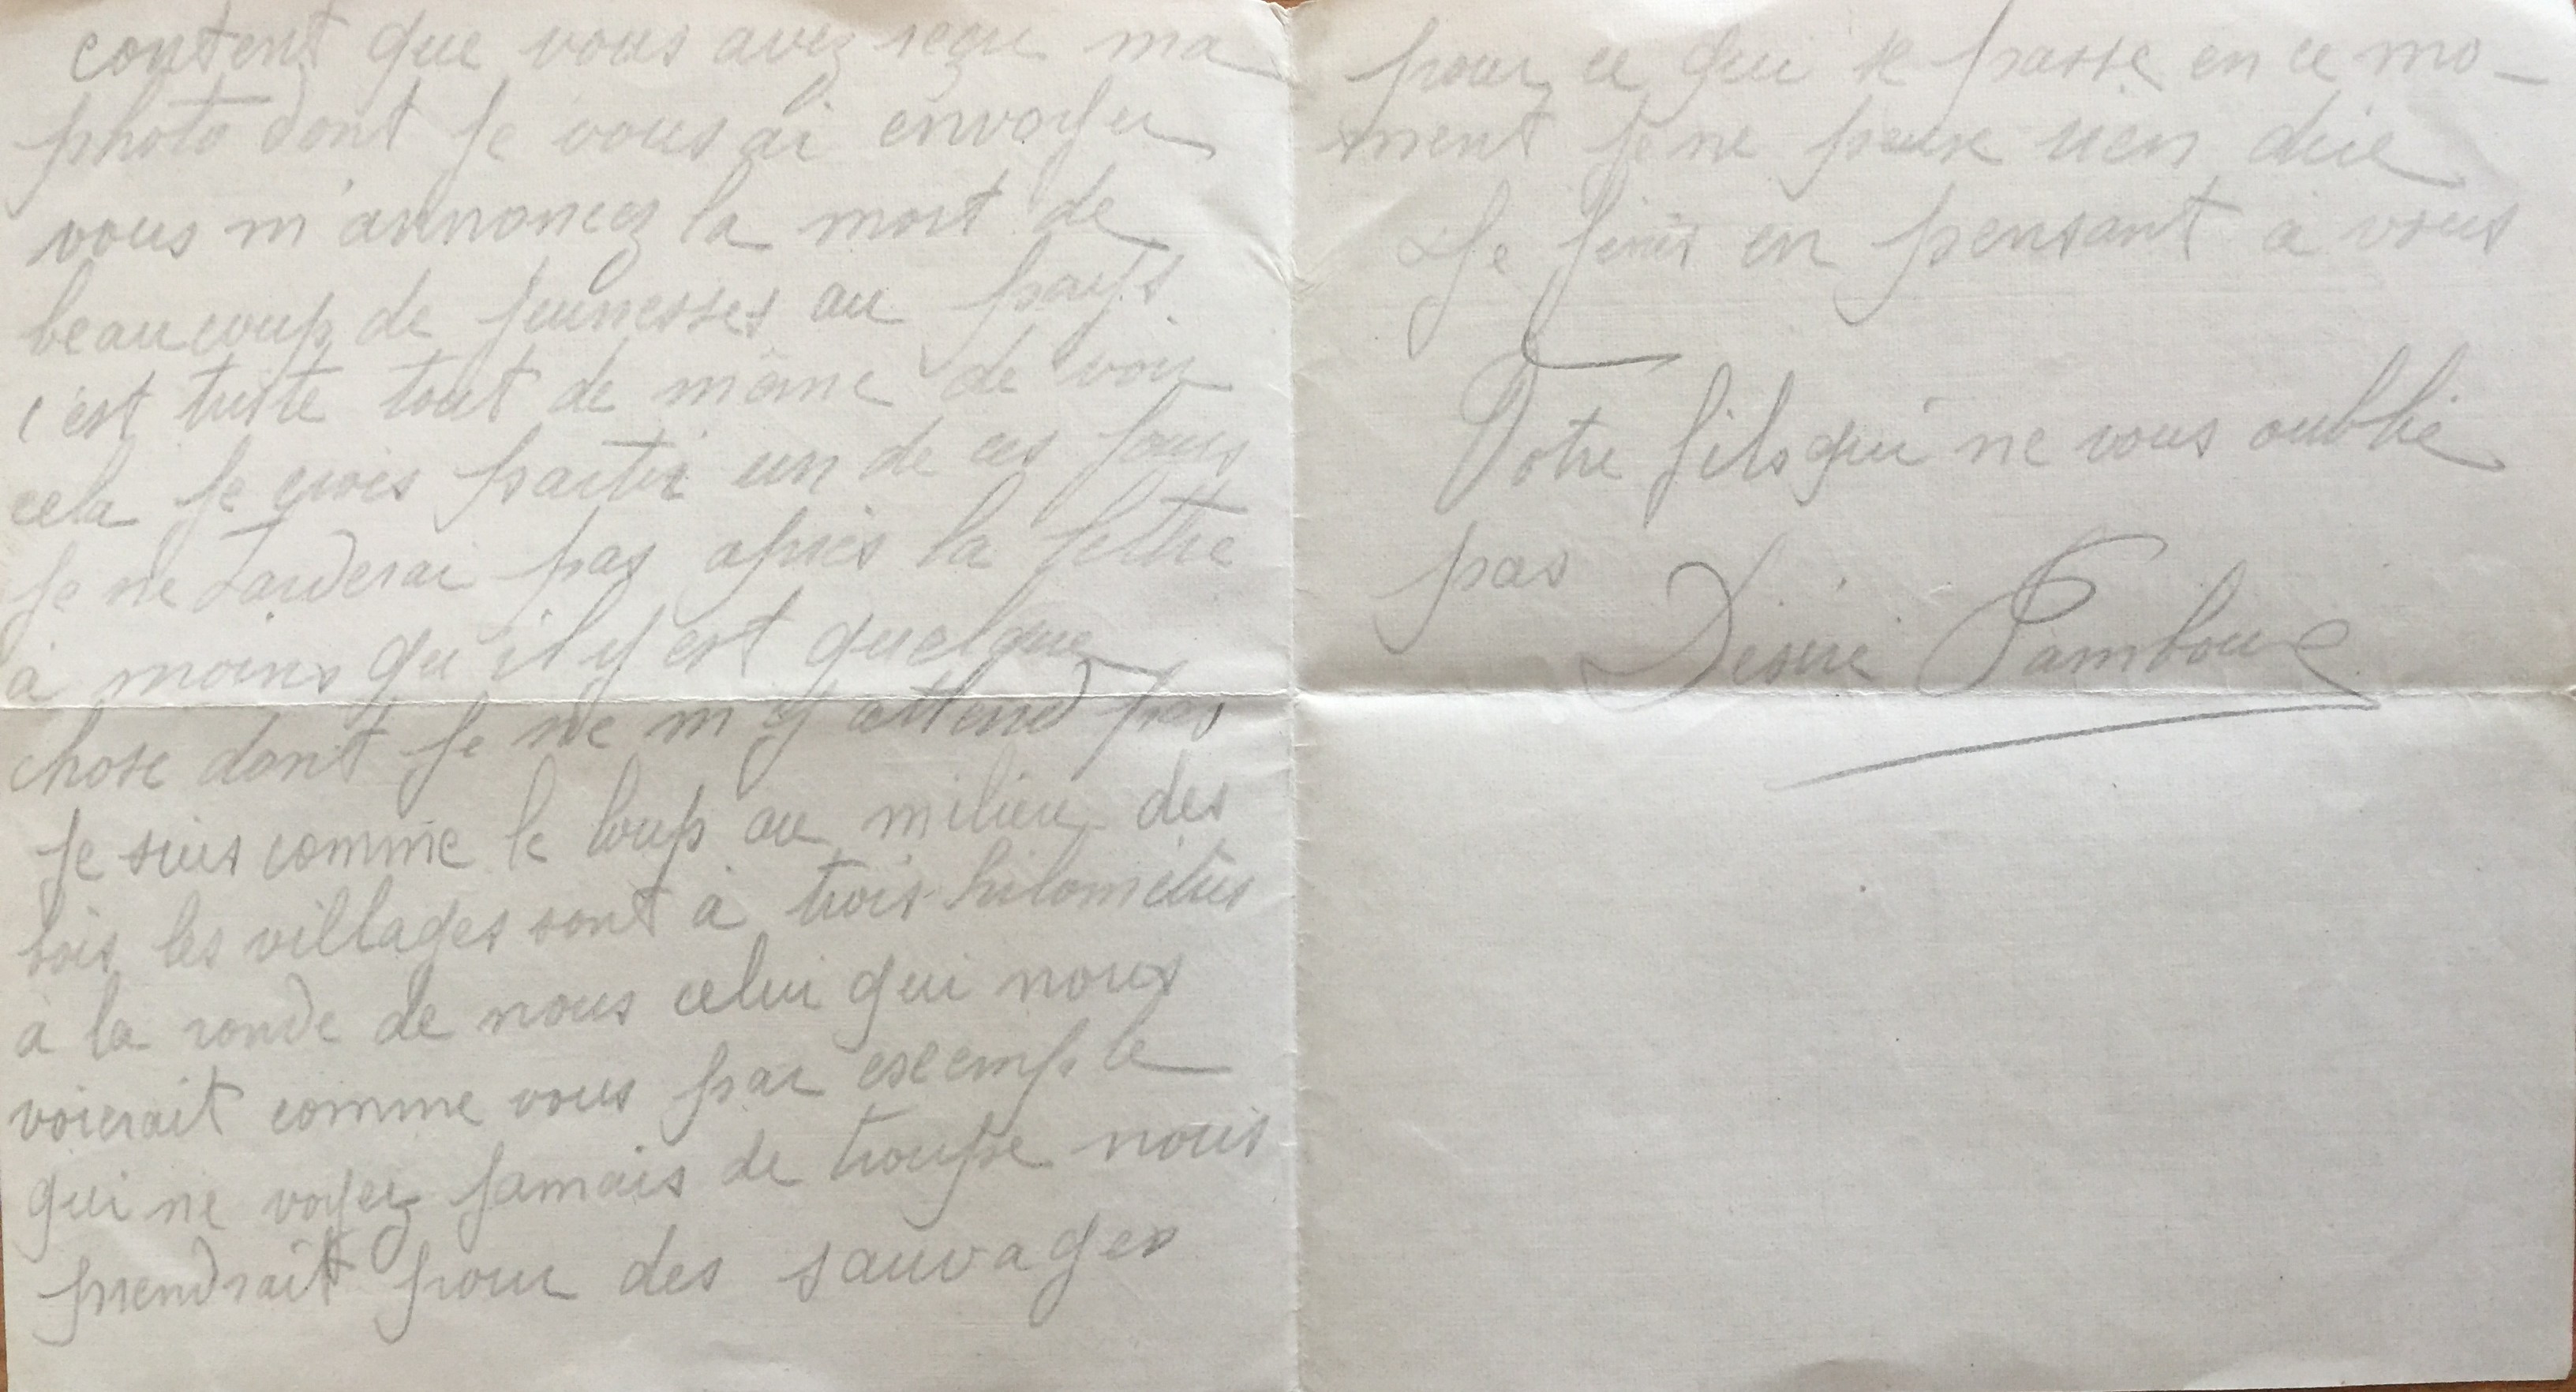 content que vous avez reçu ma
photo dont je vous ai envoyer
vous m'annoncez la mort de
beaucoup de jeunesses au pays
c'est triste tout de même de voir
cela je crois partir un de ces jours
je ne tarderai pas après la lettre
à moins qu'il y est quelque
chose dont je ne m'y attend pas
je suis comme le loup au milieu des
bois les villages sont à trois kilomètres
à la ronde de nous celui qui nous
voierait comme vous par exemple
qui ne voyez jamais de troupe nous
prendrait pour des sauvages
pour ce qui se passe en ce mo-
ment je ne peux rien dire
Je finis en pensant à vous
Votre fils qui ne vous oublie
pas Désiré